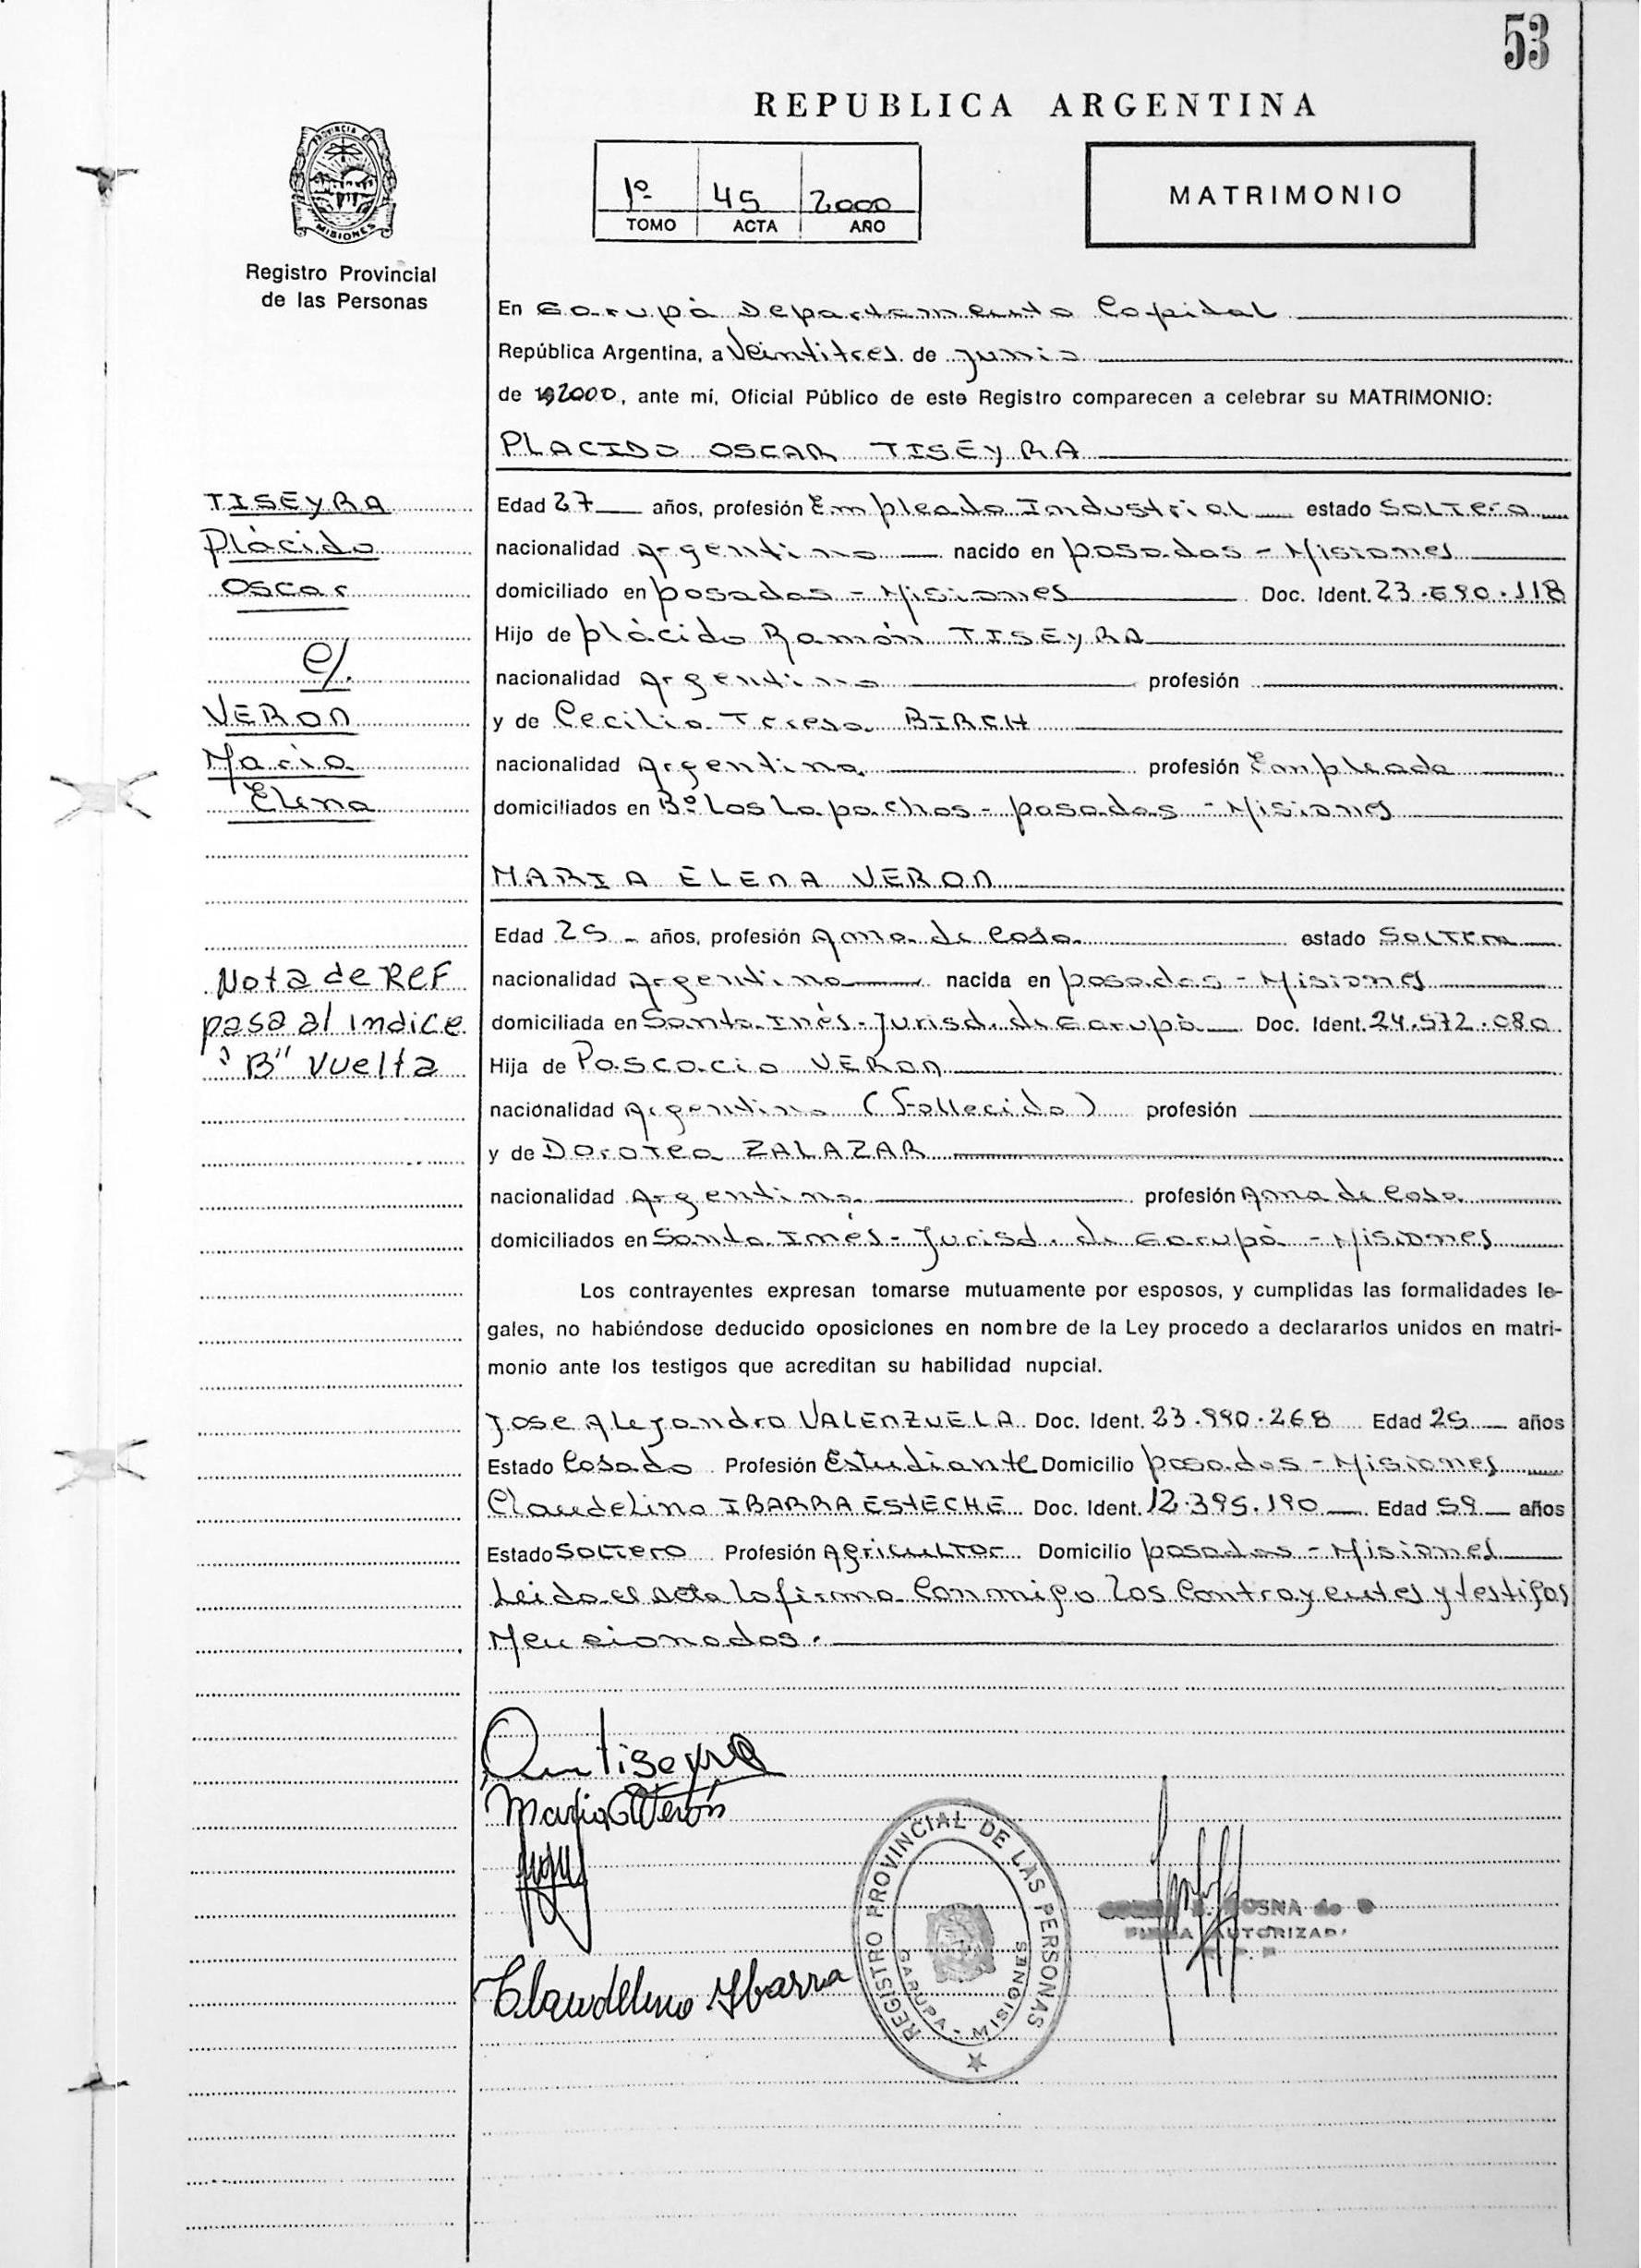 53
REPUBLICA ARGENTINA
1º 45 2000
TOMO ACTA AÑO
MATRIMONIO
PROVINCIA DE
MISIONES
Registro Provincial
de las Personas
En Garupà Departamento Capital
República Argentina, a Veintitres de Junio
de 2000, ante mí, Oficial Público de este Registro comparecen a celebrar su MATRIMONIO:
PLACIDO OSCAR TISEYRA
TISEYRA
Plàcido
Oscar
c/.
VERON
Maria
Elena
Edad 27 años, profesión Empleado Industrial estado Soltero
nacionalidad Argentino nacido en posadas - Misiones
domiciliado en posadas - Misiones Doc. Ident. 23.690.118
Hijo de plàcido Ramón TISEYRA
nacionalidad Argentino profesión
y de Cecilia Teresa BIRCH
nacionalidad Argentina profesión Empleada
domiciliados en Bº Los Lapachos - posadas - Misiones
MARIA ELENA VERON
Edad 25 años, profesión Ama de Casa estado Soltera
nacionalidad Argentina nacida en posadas - Misiones
domiciliada en Santa Inés - Jurisd. de Garupà Doc. Ident. 24.572.080
Hija de Pascacio VERON
nacionalidad Argentino (Fallecido) profesión
y de Dorotea ZALAZAR
nacionalidad Argentina profesión Ama de Casa
domiciliados en Santa Inés - Jurisd. de Garupà - Misiones
Nota de REF
pasa al indice
"B" vuelta
Los contrayentes expresan tomarse mutuamente por esposos, y cumplidas las formalidades le-
gales, no habiéndose deducido oposiciones en nombre de la Ley procedo a declararlos unidos en matri-
monio ante los testigos que acreditan su habilidad nupcial.
Jose Alejandro VALENZUELA Doc. Ident. 23.990.268 Edad 25 años
Estado Casado Profesión Estudiante Domicilio posadas - Misiones
Claudelino IBARRA ESTECHE Doc. Ident. 12.395.190 Edad 59 años
Estado Soltero Profesión Agricultor Domicilio posadas - Misiones
Leida el acta la firma Conmigo los Contrayentes y testigos
Mencionados.
tiseyra
Maria E Verón
Claudelino Ibarra
REGISTRO PROVINCIAL DE LAS PERSONAS
GARUPA - MISIONES
OSNA de
FIRMA AUTORIZAD